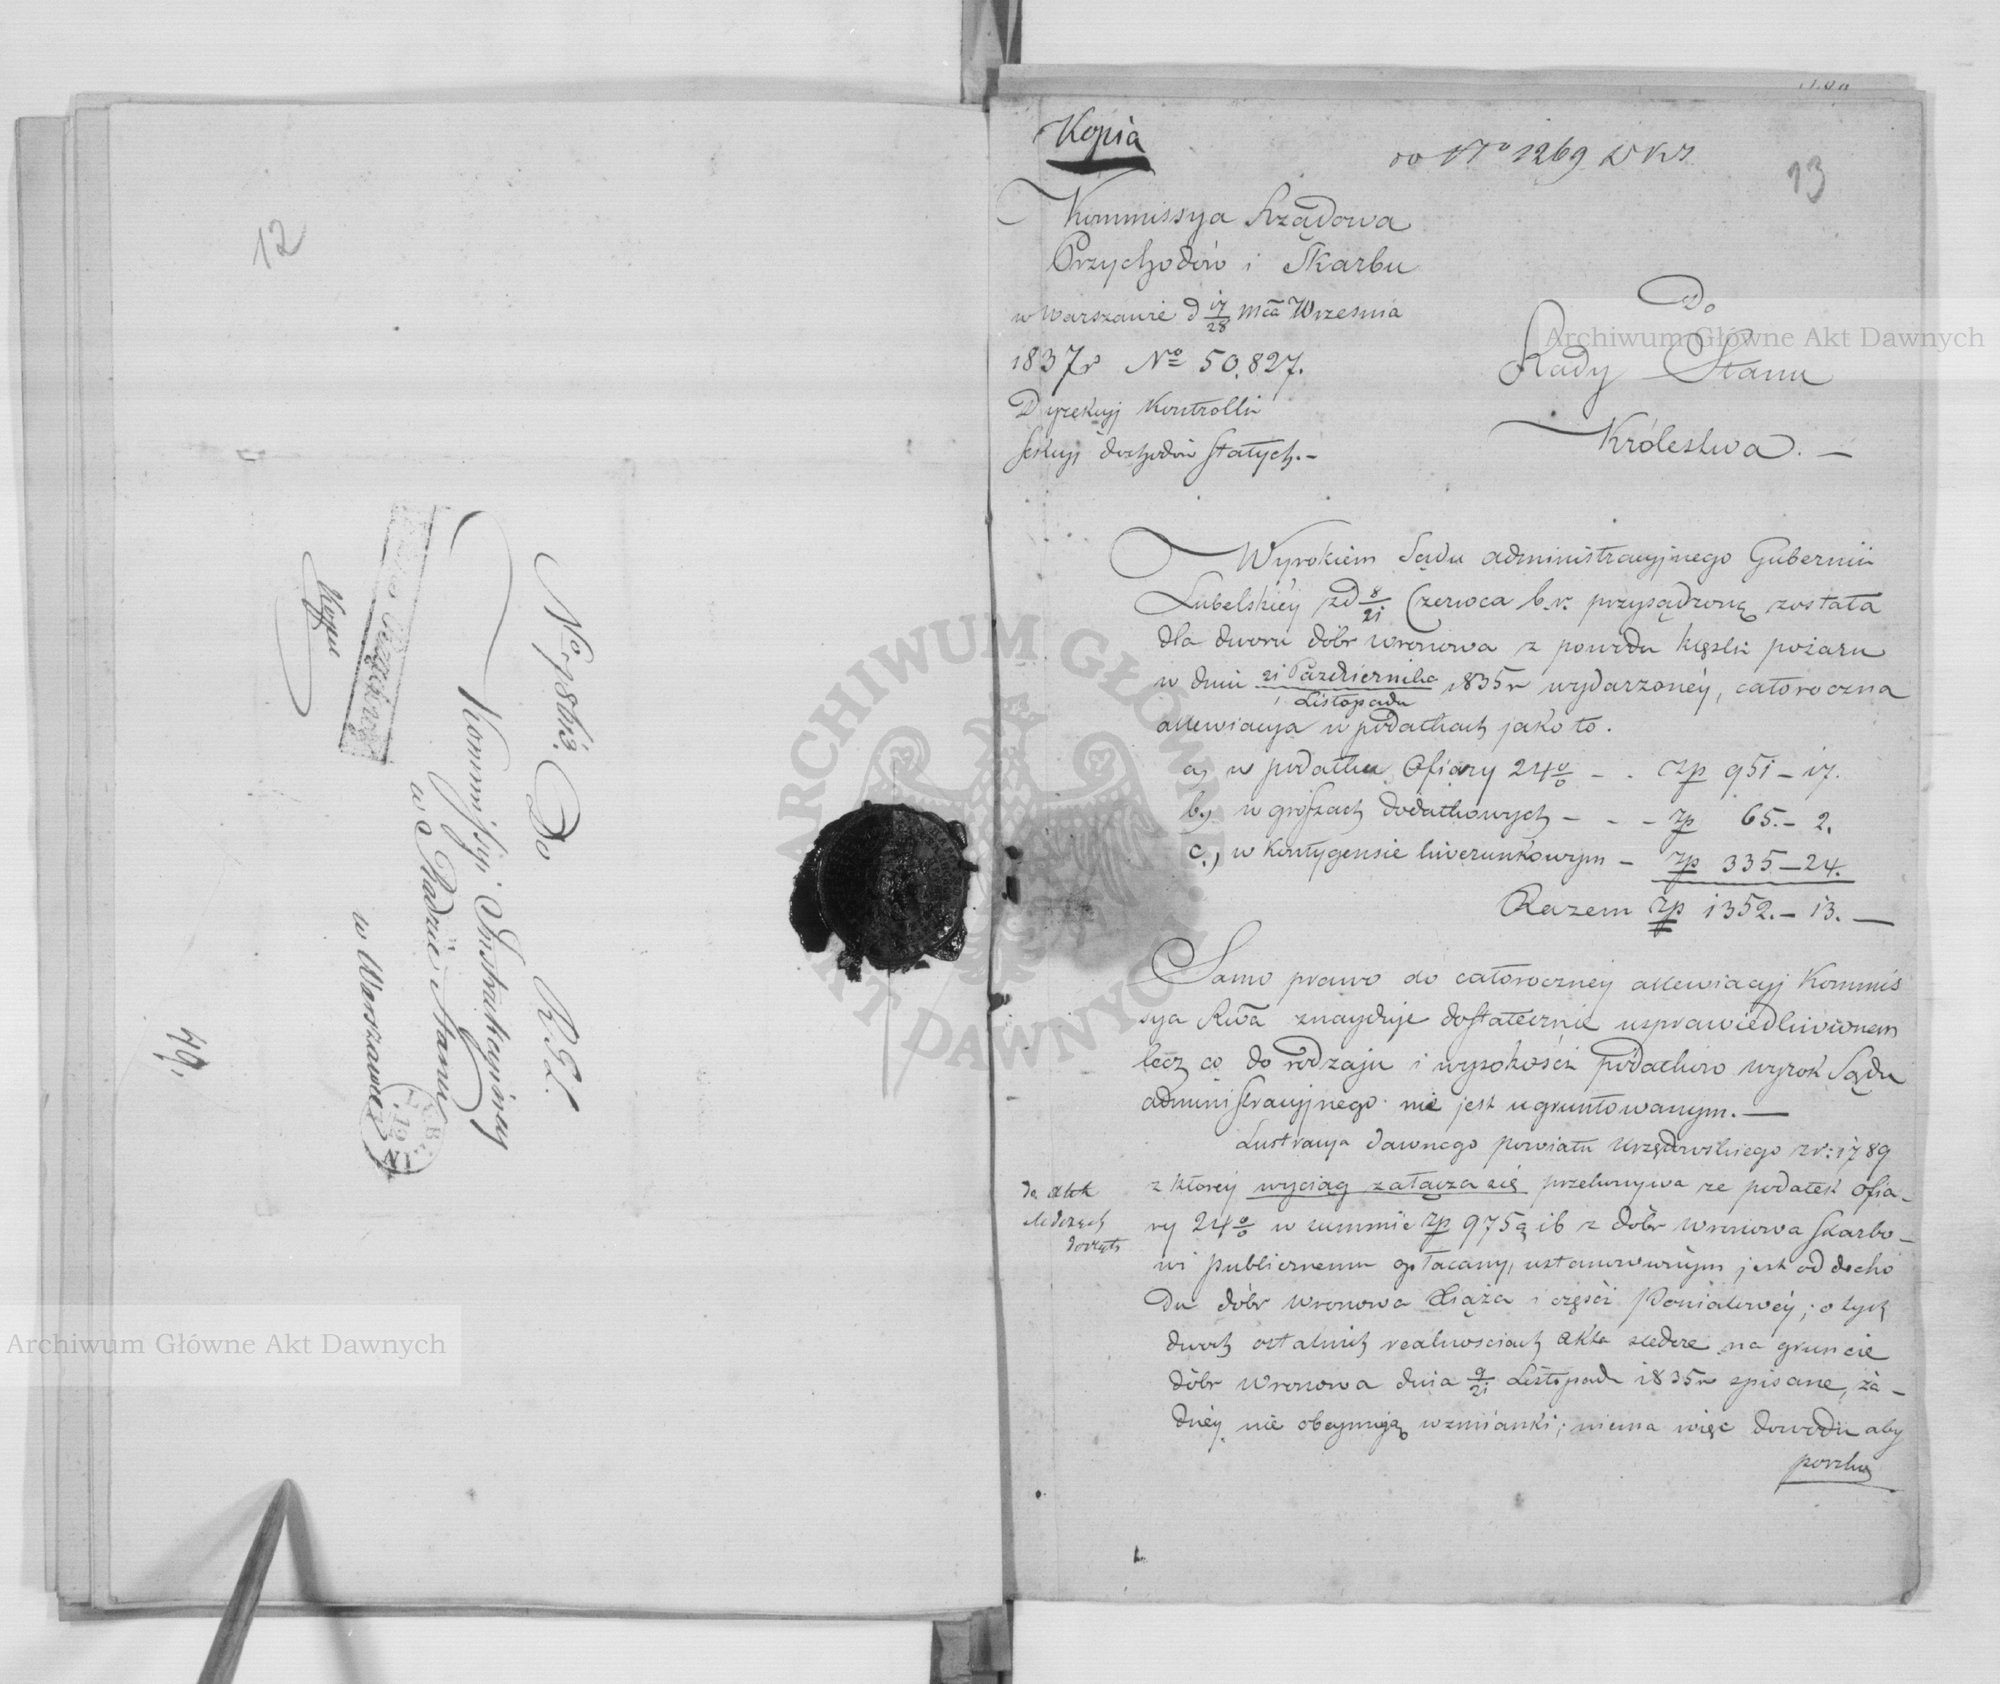 12
No 786/3. Do R. St.
Kommissyi Instrukcyjney
w Radzie Stanu
w Warszawie
Kopia
49.
Kopia
do No 1269
13
Kommissya Rządowa
Przychodów i Skarbu
w Warszawie d 17/28 mca Wrzesnia
1837 r No 50,827.
Dyrekcyj Kontrolli
Sekcyj dochodów stałych. –
Do
Rady Stanu
Królestwa. –
Wyrokiem Sądu administracyjnego Gubernii
Lubelskiey z d 8/21 Czerwca b. r. przysądzoną została
dla dworu dóbr Wronowa z powodu klęski pożaru
w dniu 21 Października / 1 Listopada 1835 r wydarzoney, całoroczna
allewiacya w podatkach jako to.
a, w podatku Ofiary 24 0/0 – . Zp 951 – 17.
b, w groszach dodatkowych – – – Zp 65. – 2.
c, w kontygensie liwerunkowym – Zp 335 – 24.
Razem Zp 1352. – 13. –
Samo prawo do całoroczney allewiacyj Kommis
sya Rwa znayduje dostatecznie usprawiedliwionem
lecz co do rodzaju i wysokości podatków wyrok Sądu
administracyjnego nie jest ugruntowanym. –
Lustracya dawnego powiatu Urzędowskiego z r: 1789
z którey wyciąg załącza się przekonywa ze podatek ofia–
ry 24 0/0 w summie Zp 975 g 16 z dóbr Wronowa Skarbo–
wi publicznemu opłacany, ustanowionym jest od docho
du dóbr Wronowa Xiąża i części Poniatowéy; o tych
dwóch ostatnich realnosciach akta sledcze na gruncie
dóbr Wronowa dnia 9/21 Listopada 1835 r spisane, ża–
dnéy nie obeymują wzmianki; niema więc dowodu aby
do akt
śledczych
Archiwum Główne Akt Dawnych
Archiwum Główne Akt Dawnych
ARCHIWUM GŁÓWNE AKT DAWNYCH